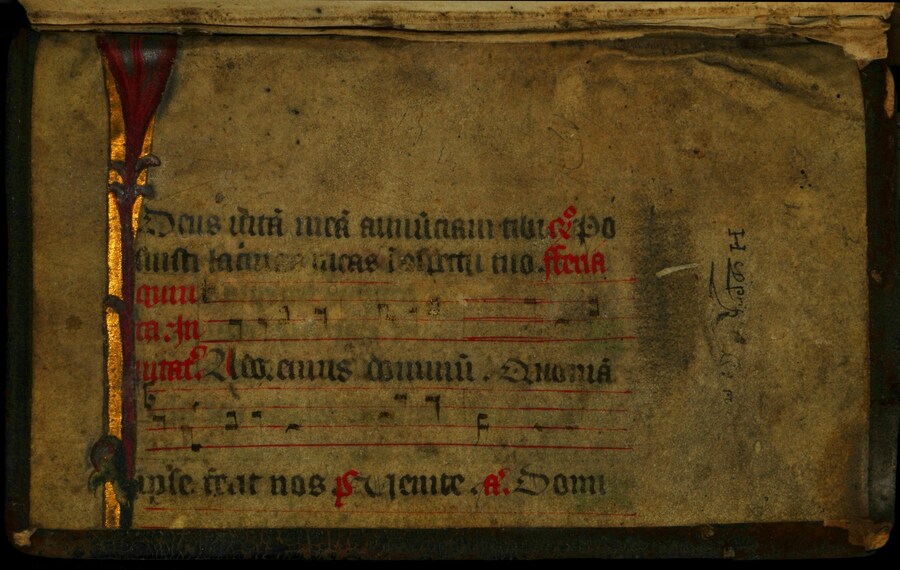 Deus vitā meā annūciaui tibi Po
suisti lacrimas meas ī ospectu tuo. feria
quin
ta. In
uitat. Adoremus dominū. Quoniā
ipse fecit nos ps Venite. a. Domi